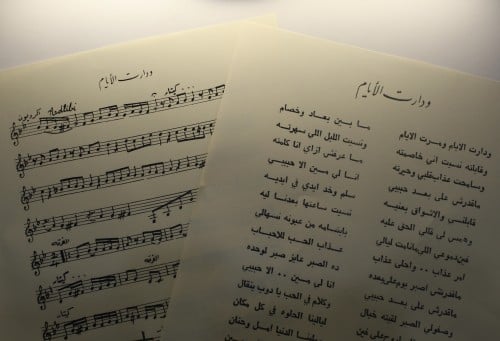 ودارت الأيام
ودارت الأيام
ودارت الايام ومرت الايام
ما بين بعاد وخصام
وقابلته نسيت اني خاصمته
ونسيت الليل اللي سهرته
وسامحت عذاب قلبي وحيرته
ما عرفش ازاي انا كلمته
ماقدرش على بعد حبيبي
انا لي مين الا حبيبي
قابلني والاشواق بعنيه
سلم وخد ايدي في ايديه
وهمس لي قالى الحق عليه
نسيت ساعتها بعدنا ليه
فين دموعي اللي مانامت ليالي
بابتسامه من عيونه نسهالي
امر عذاب .. واحلى عذاب
عذاب الحب للاحباب
ماقدرش اصبر يوم على بعده
ده الصبر عايز صبر لوحده
ماقدرش على بعد حبيبي
انا لى مين .. الا حبيبي
وصفولي الصبر لقيته خيال
وكلام في الحب يا دوب ينقال
ليالينا الحلوه في كل مكان
الدنيا امل وحنان